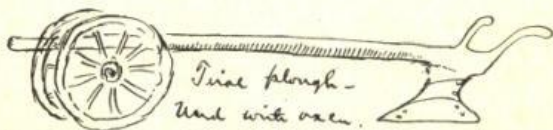 Tirol plough -
Used with oxen.